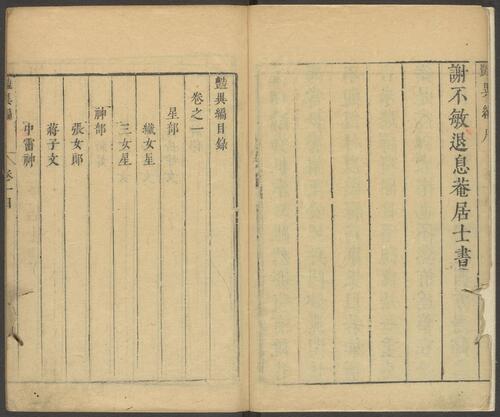 豔異編序
謝不敏退息菴居士書
豔異編目錄
卷之一
星部
織女星
三女星
神部
張女郎
蔣子文
中霤神
豔異編
卷一目